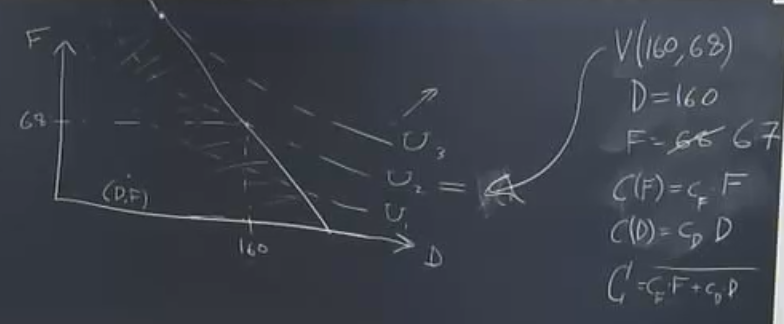 F
68
(D,F)
160
D
U₃
U₂ =
U₁
V(160,68)
D=160
F= 67
C(F)=c_F·F
C(D)=c_D D
C=c_F·F+c_D·D